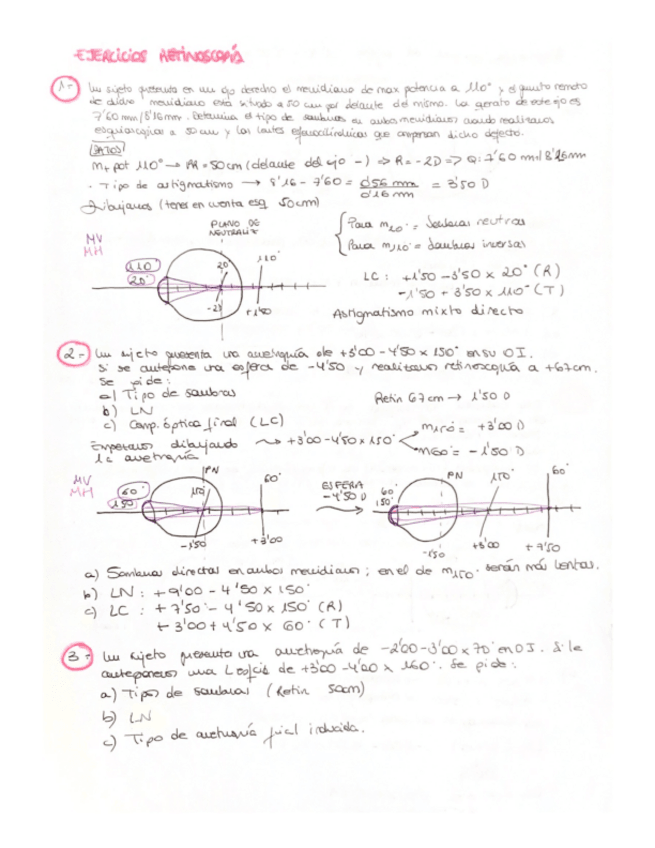 EJERCICIOS RETINOSCOPÍA
1- Un sujeto presenta en un ojo derecho el meridiano de max potencia a 110° y el punto remoto
de dicho meridiano está situado a 50 cm por delante del mismo. La de este ojo es
7'60 mm / 8'16 mm. Determina el tipo de sombras en ambos meridianos cuando realizamos
esquiascopia a 50 cm y las lentes esferocilíndricas que compensan dicho defecto.
DATOS
M+ pot 110° → PR = 50 cm (delante del ojo -) ⇒ R = -2D ⇒ Q: 7'60 mm / 8'16 mm
· Tipo de astigmatismo → 8'16 - 7'60 = 0'56 mm / 0'16 mm = 3'50 D
Dibujamos (tener en cuenta esq 50cm)
PLANO DE
NEUTRALIZ
MV
MH
110°
20°
20°
110°
-2
+1'50
Para m20° = Sombras neutras
Para m110° = Sombras inversas
LC: +1'50 -3'50 x 20° (R)
-1'50 + 3'50 x 110° (T)
Astigmatismo mixto directo
2- Un sujeto presenta una ametropía de +3'00 - 4'50 x 150° en su OI.
Si se antepone una esfera de -4'50 y realizamos retinoscopía a +67cm.
Se pide:
a) Tipo de sombras
b) LN
c) Comp. óptica final (LC)
Retin 67cm → 1'50 D
Empezamos dibujando
la ametropía
→ +3'00 - 4'50 x 150°
m150° = +3'00 D
m60° = -1'50 D
MV
MH
60°
150°
PN
150°
60°
-1'50
+3'00
ESFERA
-4'50 D
60°
150°
PN
150°
60°
-1'50
+3'00
+7'50
a) Sombras directas en ambos meridianos; en el de m150° serán más lentas.
b) LN: +9'00 - 4'50 x 150°
c) LC: +7'50 - 4'50 x 150° (R)
+3'00 + 4'50 x 60° (T)
3- Un sujeto presenta una ametropía de -2'00 -3'00 x 70° en OI. Si le
anteponemos una L esfcil de +3'00 -4'00 x 160°. Se pide:
a) Tipos de sombras (Retin 50cm)
b) LN
c) Tipo de ametropía final inducida.